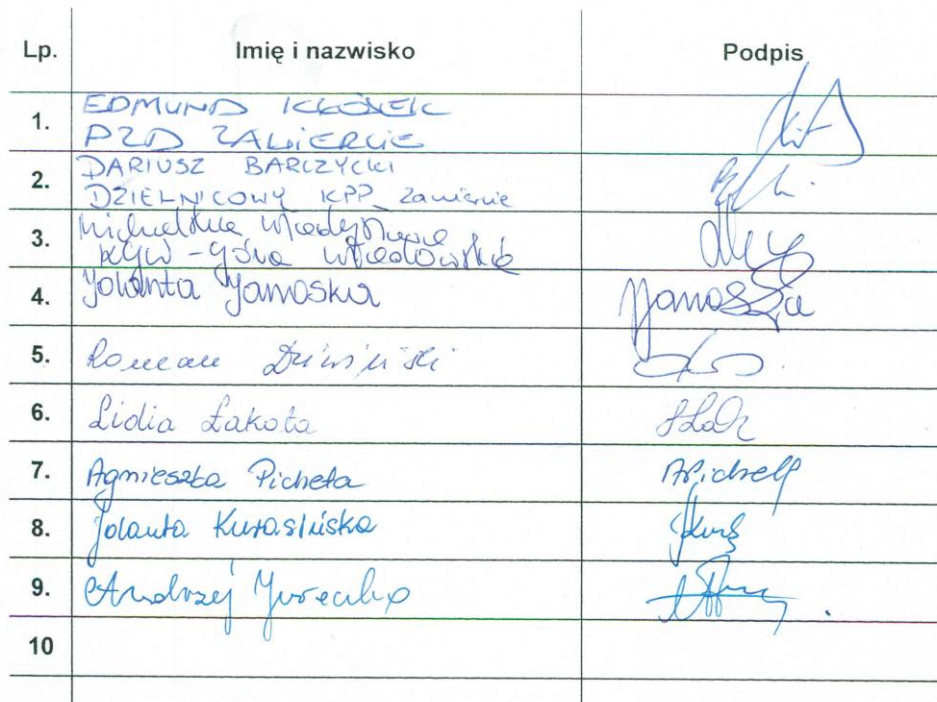 Lp. Imię i nazwisko Podpis
1. EDMUND
PZD ZAWIERCIE
2. DARIUSZ BARCZYCKI
DZIELNICOWY KPP Zawiercie
3. Michalska Władysława
KGW - Góra Włodowska
4. Jolanta Janoska Janoska
5. Roman
6. Lidia Łakota
7. Agnieszka Picheta APichet
8. Jolanta Kurasińska
9. Andrzej
10